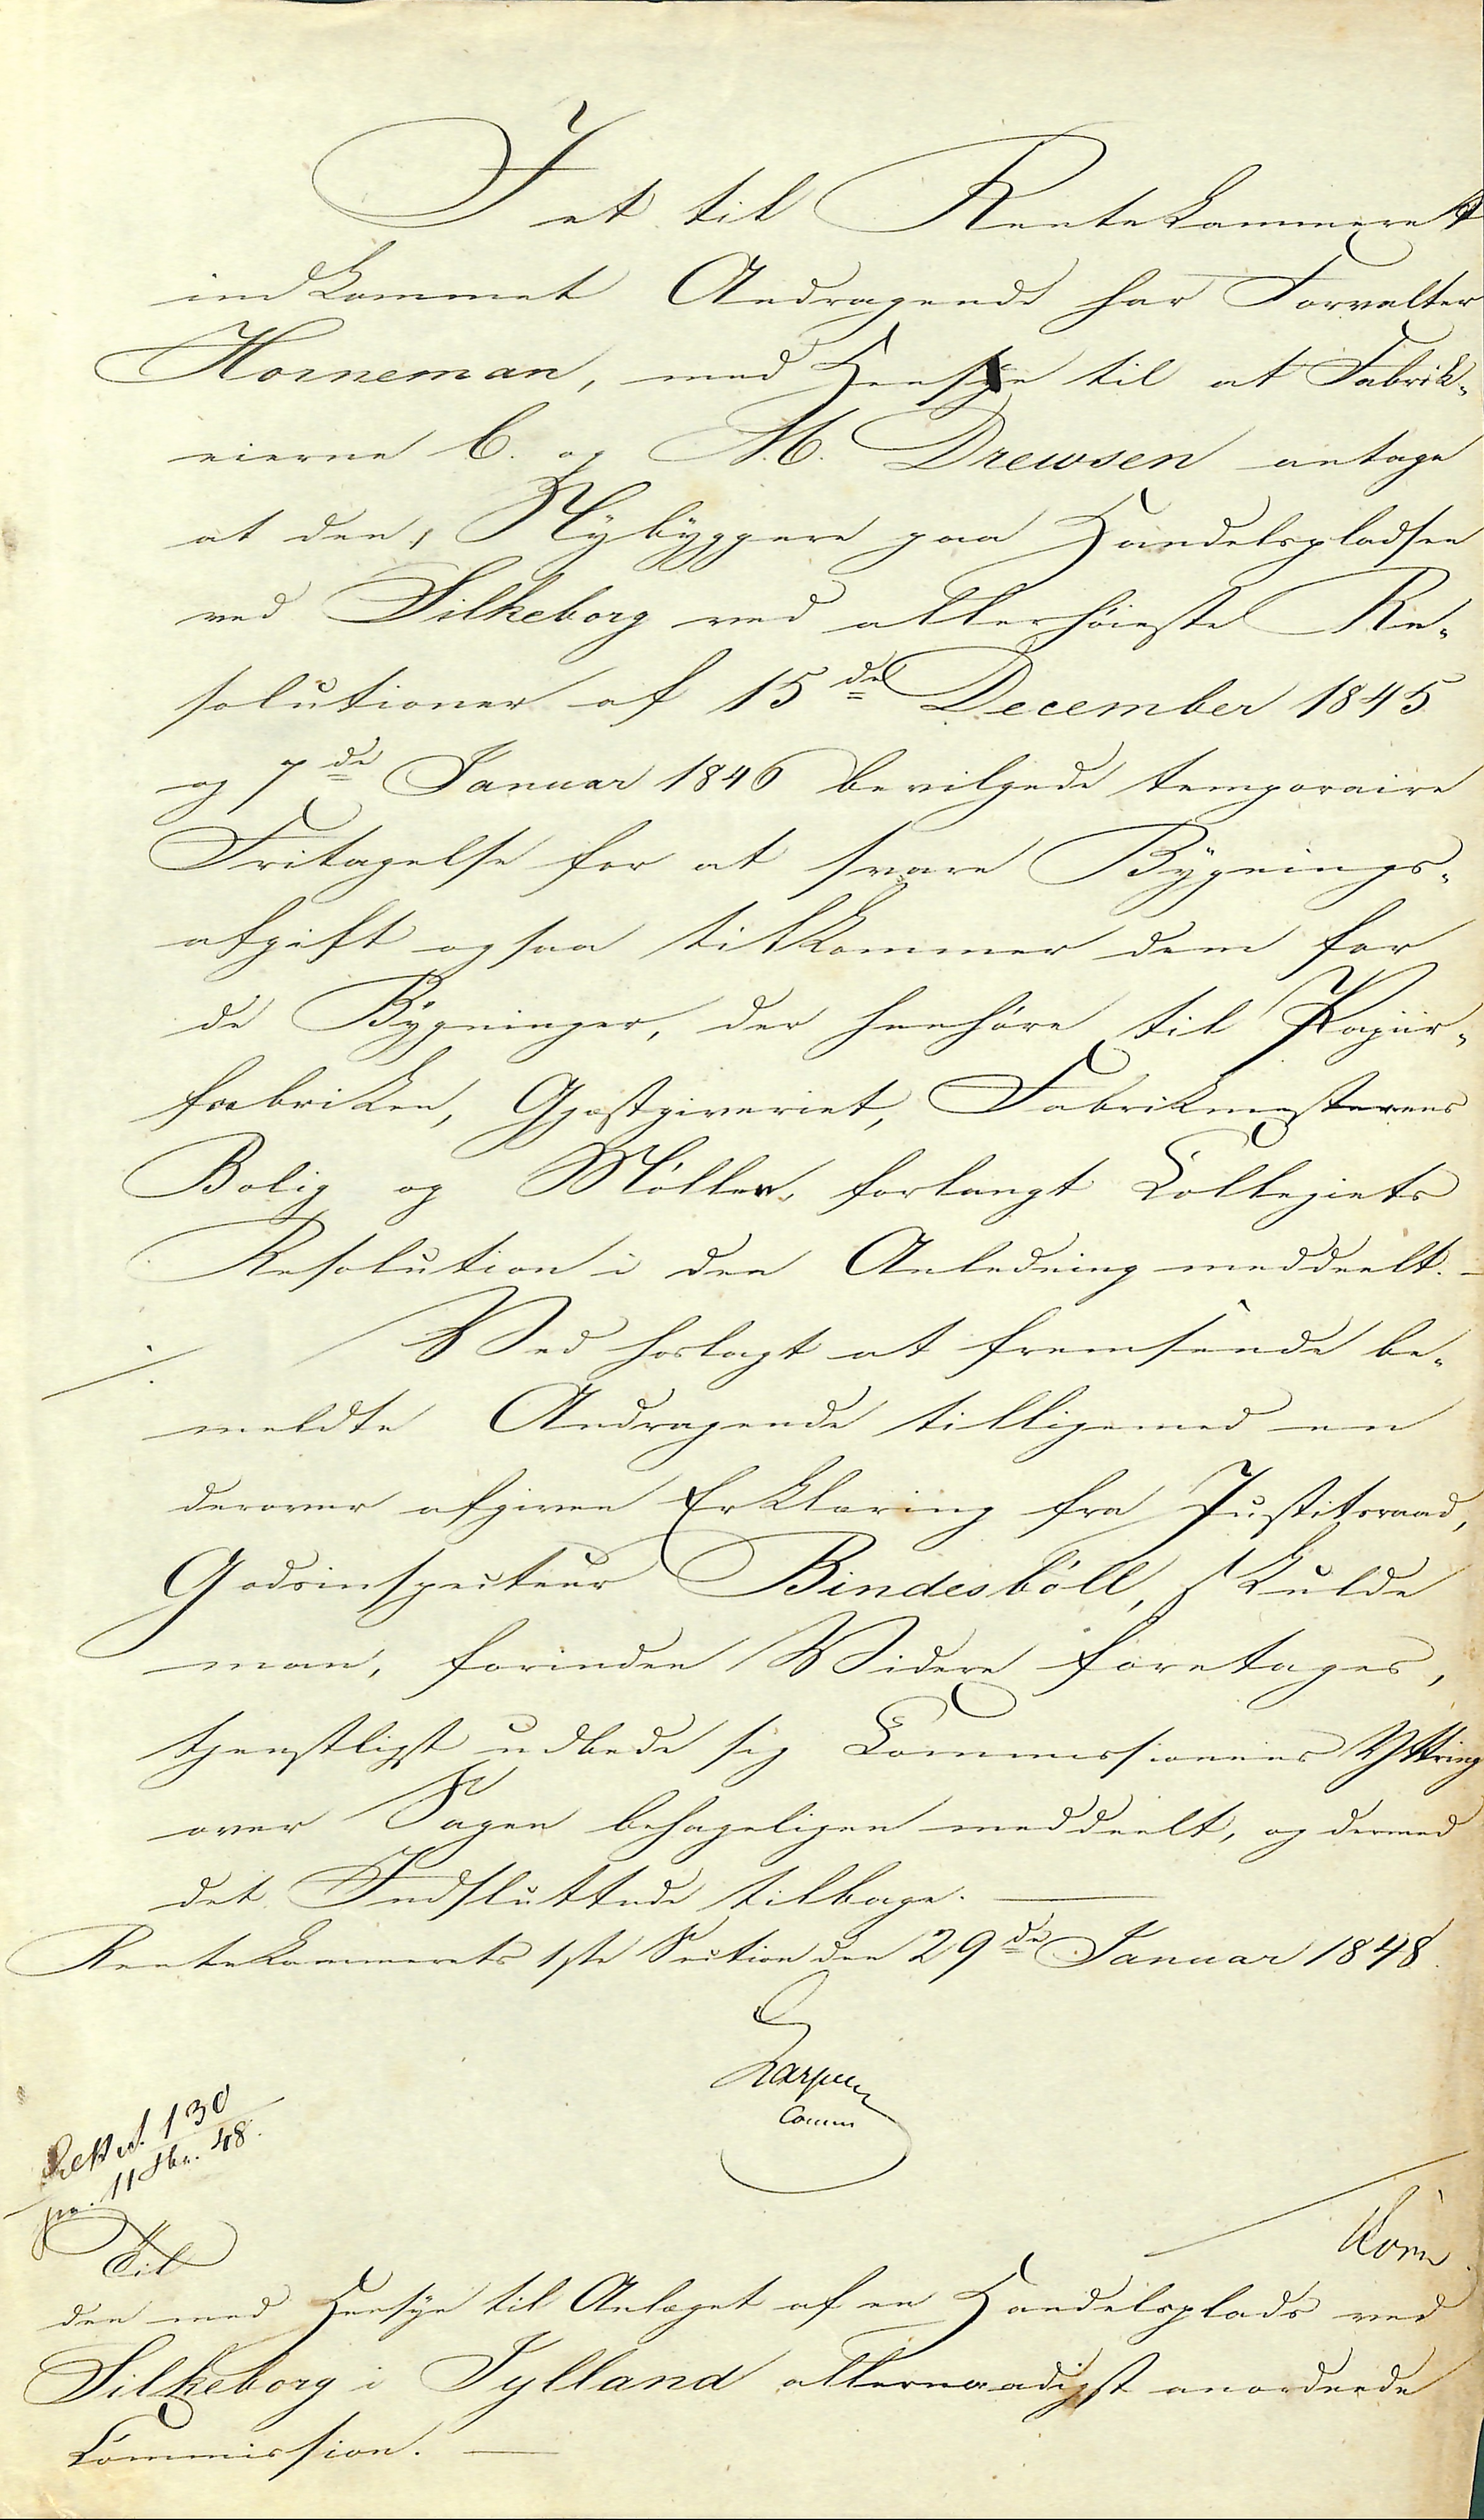 I et til Rentekammeret
indkommet Andragende har Forvalter
Horneman, med Hensyn til at Fabrik-
eierne C. og M. Drewsen antage
at den, Nybyggere paa Handelspladsen
ved Silkeborg ved allerhöieste Re-
solutioner af 15de December 1845
og 7de Januar 1846 bevilgede temporaire
Fritagelse for at svare Bygnings-
afgift ogsaa tilkommer dem for
de Bygninger, der henhöre til Papiir-
fabriken, Gjæstgiveriet, Fabrikmesterens
Bolig og Möllen, forlangt Collegiets
Resolution i den Anledning meddeelt. -
./. Ved hoslagt at fremsende be-
meldte Andragende tilligemed en
derover afgiven Erklæring fra Justitsraad,
Godsinspecteur Bindesböll, skulde
man, forinden Videre foretages,
tjenstligst udbede sig Commissionens Yttring
over Sagen behageligen meddeelt, og dermed
det Indsluttede tilbage. —
Rentekammerets 1ste Section den 29de Januar 1848.
130
11 Fbr. 48.
Til
den med Hensyn til Anlæget af en Handelsplads ved
Silkeborg i Jylland allernaadigst anordnede
Commission. —